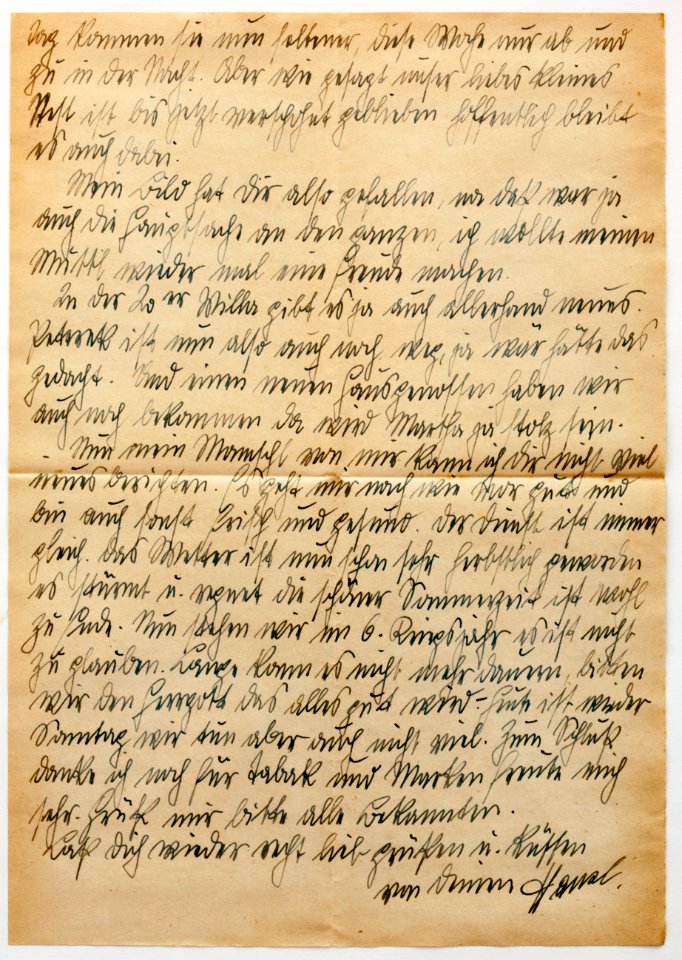 Tag kommen sie nun seltener, diese Woche nur ab und
zu in der Nacht. Aber wie gesagt unser liebes kleines
Nest ist bis jetzt verschohnt geblieben hoffentlich bleibt
es auch dabei.
Mein Bild hat Dir also gefallen, na daß war ja
auch die Hauptsache an den ganzen, ich wollte meinen
Muttl wieder mal eine Freude machen.
In der 20er Villa gibt es ja auch allerhand neues.
Peterek ist nun also auch noch weg, ja wär hätte das
gedacht. Und einen neuen Hausgenossen haben wir
auch noch bekommen da wird Martha ja stolz sein.
Nun mein Mamschl von mir kann ich dir nicht viel
neues berichten. Es geht mir nach wie vor gut und
bin auch sonst frisch und gesund. Der Dienst ist immer
gleich. Das Wetter ist nun schon sehr herbstlich geworden
es stürmt u. regnet die schöner Sommerzeit ist wohl
zu Ende. Nun stehen wir im 6. Kriegsjahr es ist nicht
zu glauben. Lange kann es nicht mehr dauern, bitten
wir den Herrgott das alles gut wird. Heute ist wieder
Sonntag wir tun aber auch nicht viel. Zum Schluß
danke ich noch für Tabak und Marken freute mich
sehr. Grüß mir bitte alle Bekannten.
Laß Dich wieder recht lieb grüßen u. küssen
von deinen Hansl.